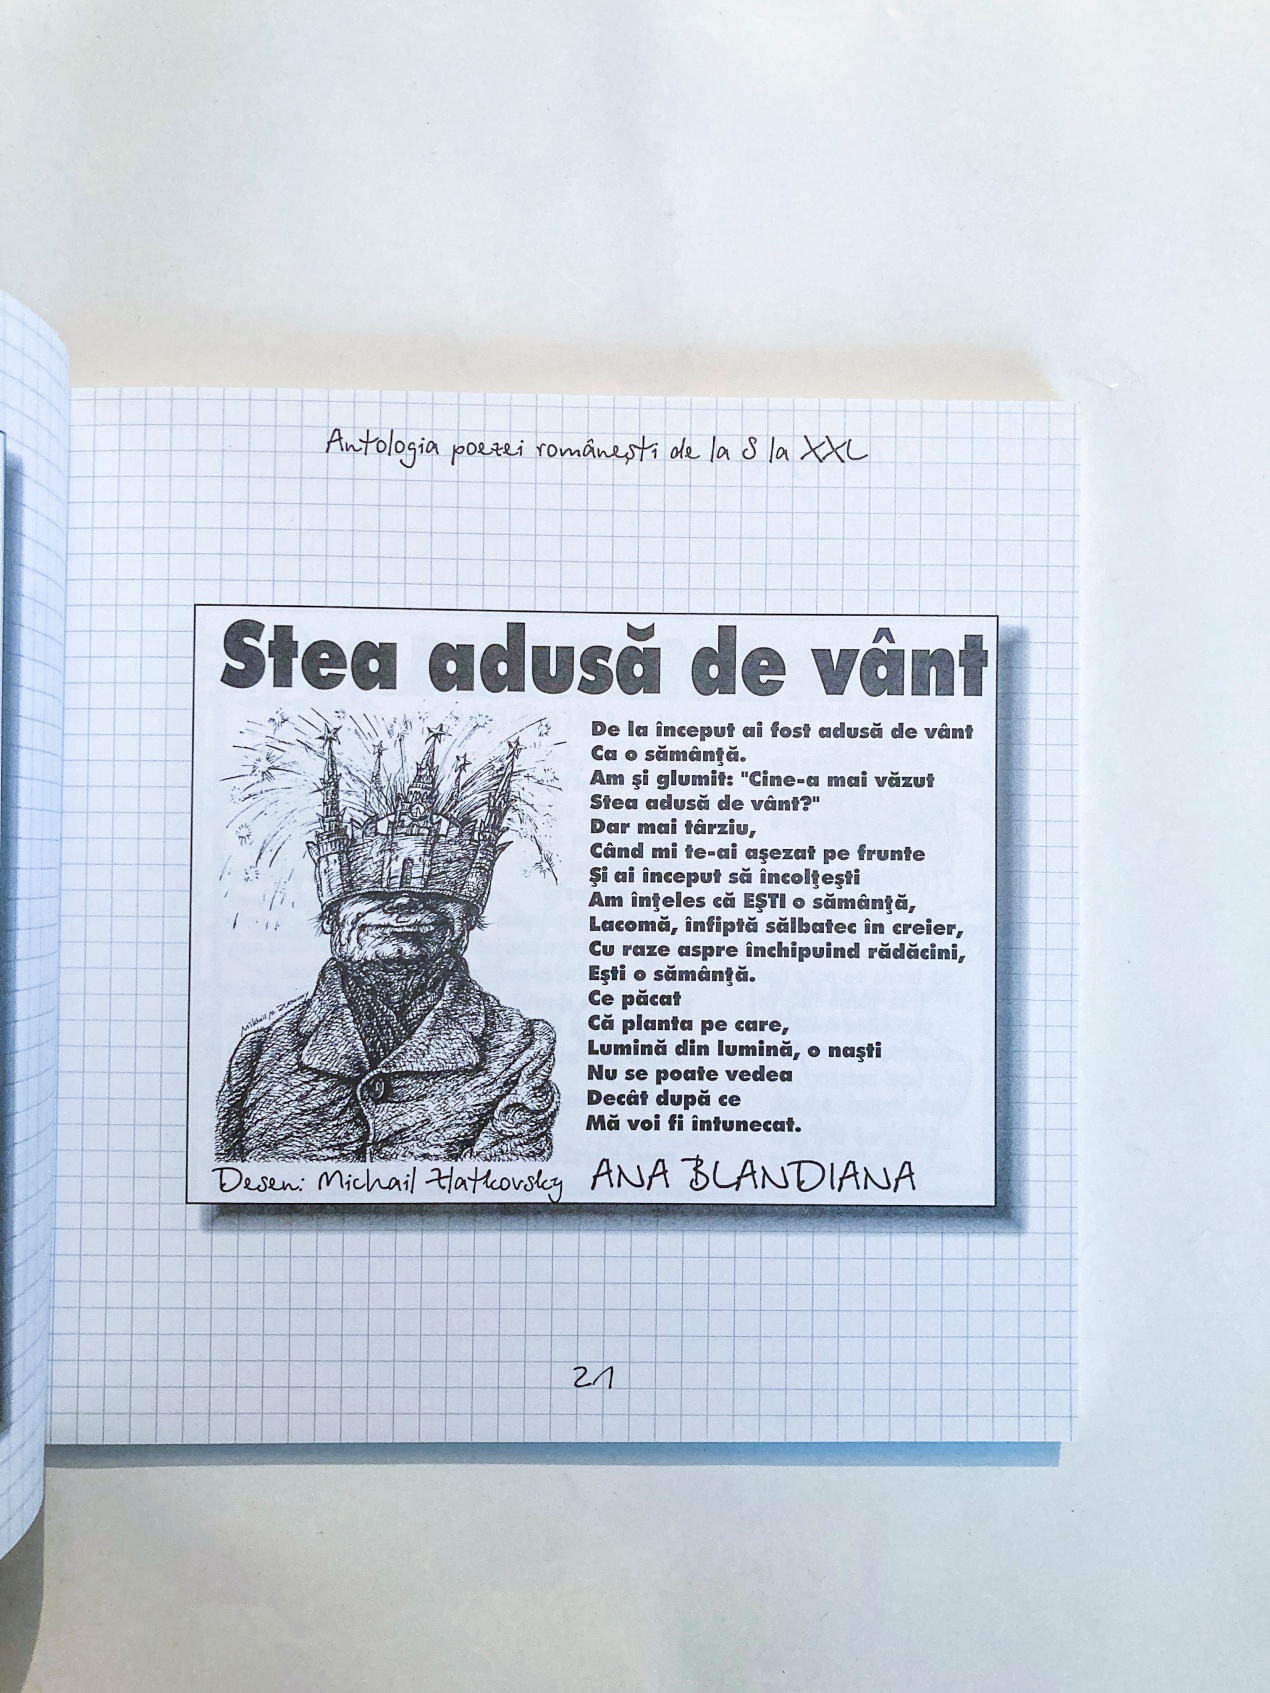 Antologia poezei românești de la S la XXL
Stea adusă de vânt
De la început ai fost adusă de vânt
Ca o sămânţă.
Am şi glumit: "Cine-a mai văzut
Stea adusă de vânt?"
Dar mai târziu,
Când mi te-ai aşezat pe frunte
Şi ai început să încolţeşti
Am înţeles că EŞTI o sămânţă,
Lacomă, înfiptă sălbatec în creier,
Cu raze aspre închipuind rădăcini,
Eşti o sămânţă.
Ce păcat
Că planta pe care,
Lumină din lumină, o naşti
Nu se poate vedea
Decât după ce
Mă voi fi întunecat.
Desen: Michail Zlatkovsky
ANA BLANDIANA
21